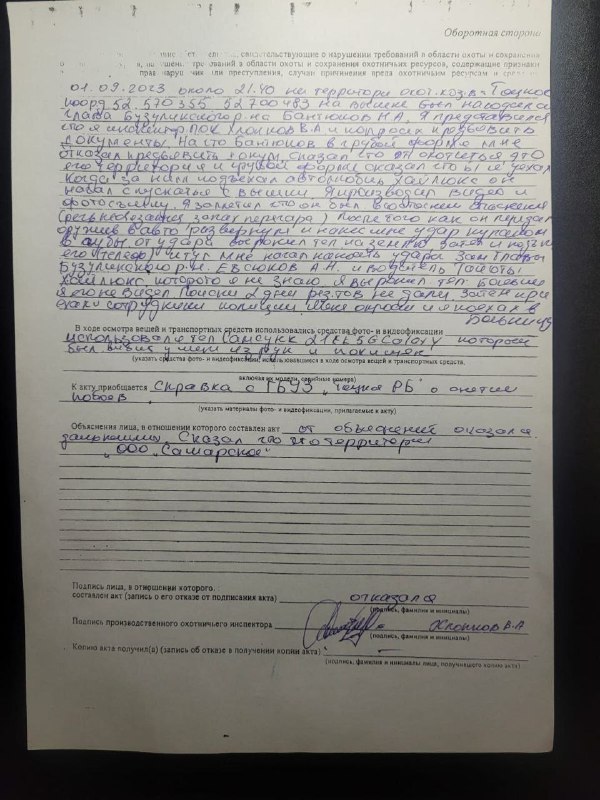 Оборотная сторона
свидетельствующие о нарушении требований в области охоты и сохранения
требований в области охоты и сохранения охотничьих ресурсов, содержащие признаки
или преступления, случаи причинения вреда охотничьим ресурсам и
01.09.2023 около 21.40 на территории охот.хоз.в
коорд 52.570355 52.700483 на вышке был находился
глава Бузулукского р-на Бантюков Н.А. Я представился
что я инспектор ПОК Хлопков В.А и попросил предъявить
документы. На что Бантюков в грубой форме мне
отказал предъявить докум. сказал что он охотиться это
его территория и в грубой форме сказал что бы я уехал
Когда за ним подъехал автомобиль Хайлюкс он
начал спускаться с вышки я производил видео и
фотосъёмку. Я заметил что он был в состоянии опьянения
(речь несвязная запах перегара) После того как он передал
оружие в авто развернулся и нанес мне удар кулаком
в зубы. от удара выронил тел на землю
его (телеф) и тут мне начал наносить удары Зам Главы
Бузулукского р-н. Евсюков А.Н. и водитель Тойоты
Хайлюкс которого я не знаю. Я выронил тел. Больше
я его не видел Поиски 2 дня рез.тов не дали. Затем при
ехали сотрудники полиции меня опросили и я поехал в
Больницу
В ходе осмотра вещей и транспортных средств использовались средства фото- и видеофиксации
использовался тел Самсунг 21FE 5G Galaxy который
был выбит у меня из рук и похищен
(указать средства фото- и видеофиксации, использовавшиеся в ходе осмотра вещей и транспортных средств,
включая их модели, серийные номера)
К акту приобщается Справка с ГБУЗ "Тоцкая РБ" о снятии
побоев
(указать материалы фото- и видеофиксации, прилагаемые к акту)
Объяснения лица, в отношении которого составлен акт от объяснений отказался
Сказал что это территория
"ООО "Самарское"
Подпись лица, в отношении которого
составлен акт (запись о его отказе от подписания акта) отказался
(подпись, фамилия и инициалы)
Подпись производственного охотничьего инспектора Хлопков В.А
(подпись, фамилия и инициалы)
Копию акта получил(а) (запись об отказе в получении копии акта)
(подпись, фамилия и инициалы лица, получившего копию акта)